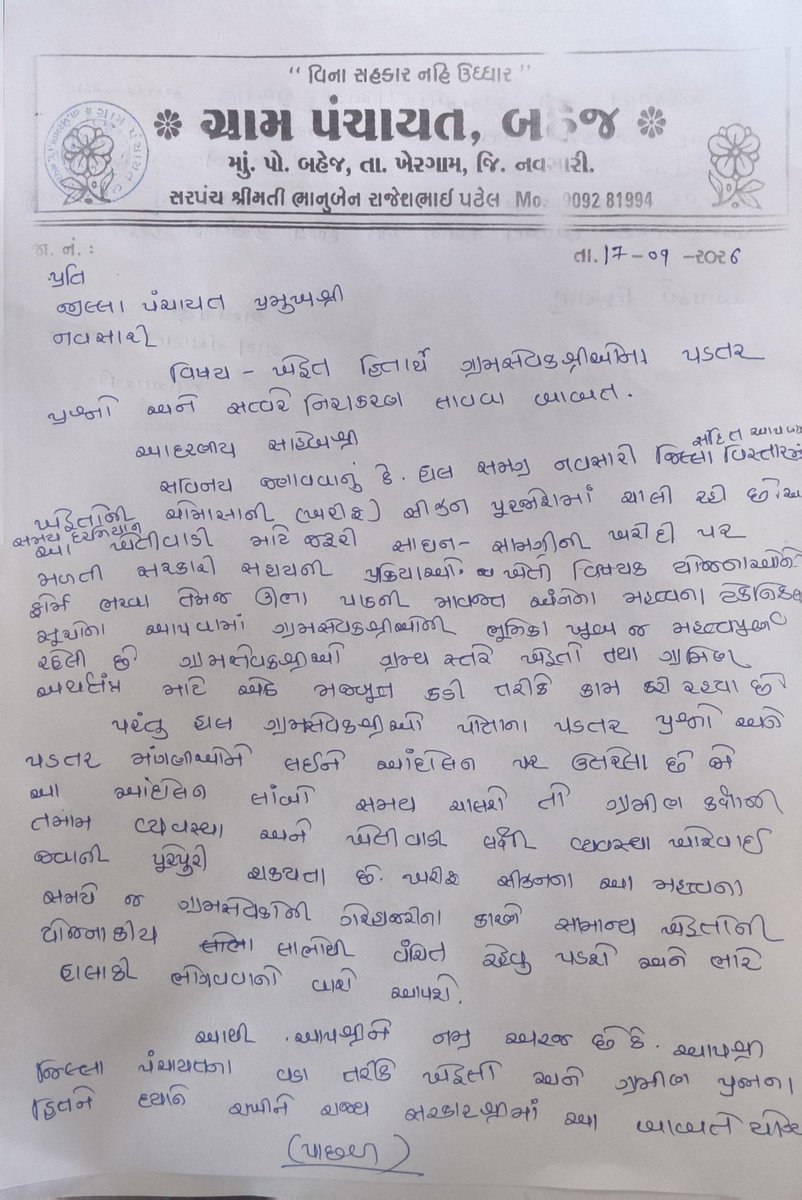 “ વિના સહકાર નહિ ઉધ્ધાર ”
ગ્રામ પંચાયત, બહેજ
મું. પો. બહેજ, તા. ખેરગામ, જિ. નવસારી.
સરપંચ શ્રીમતી ભાનુબેન રાજેશભાઈ પટેલ Mo. 9092 81994
જા. નં. :
તા. 17-01-2026
પ્રતિ
જીલ્લા પંચાયત પ્રમુખશ્રી
નવસારી
વિષય - ખેડૂત હિતાર્થે ગ્રામસેવકશ્રીઓના પડતર
પ્રશ્નો અને સત્વરે નિરાકરણ લાવવા બાબત.
આદરણીય સાહેબશ્રી
સહિત આપણા
સવિનય જણાવવાનું કે. હાલ સમગ્ર નવસારી જિલ્લા વિસ્તારમાં
ખેડૂતોની ચોમાસાની (ખરીફ) સીઝન પૂરજોશમાં ચાલી રહી છે.
સમય દરમિયાન
આ ખેતીવાડી માટે જરૂરી સાધન-સામગ્રીની ખરીદી પર
મળતી સરકારી સહાયની પ્રક્રિયાઓ ખેતી વિષયક યોજનાઓને
ફોર્મ ભરવા તેમજ ઊભા પાકની માવજત અંગેના મહત્વના ટેકનિકલ
સૂચનો આપવામાં ગ્રામસેવકશ્રીઓની ભૂમિકા ખુબ જ મહત્વપુર્ણ
રહેલી છે ગ્રામસેવકશ્રીઓ ગ્રામ્ય સ્તરે ખેડૂતો તથા ગ્રામિણ
અર્થતંત્ર માટે એક મજબુત કડી તરીકે કામ કરી રહ્યા છે
પરંતુ હાલ ગ્રામસેવકશ્રીઓ પોતાના પડતર પ્રશ્નો અને
પડતર માંગણીઓને લઈને આંદોલન પર ઉતરેલા છે જો
આ આંદોલન લાંબો સમય ચાલશે તો ગ્રામીણ કક્ષાની
તમામ વ્યવસ્થા અને ખેતીવાડી લક્ષી વ્યવસ્થા ખોરવાઈ
જવાની પૂરેપુરી શક્યતા છે. ખરીફ સીઝનના આ મહત્વના
સમયે જ ગ્રામસેવકોની ગેરહાજરીના કારણે સામાન્ય ખેડૂતોની
યોજનાકીય લાભોથી વંચિત રહેવુ પડશે અને ભારે
હાલાકી ભોગવવાનો વારો આવશે.
આથી આપશ્રીને નમ્ર અરજ છે કે. આપશ્રી
જિલ્લા પંચાયતના વડા તરીકે ખેડૂતો અને ગ્રામીણ પ્રજાના
હિતને ધ્યાને રાખીને રાજ્ય સરકારશ્રીમાં આ બાબતે યોગ્ય
(પાછળ)